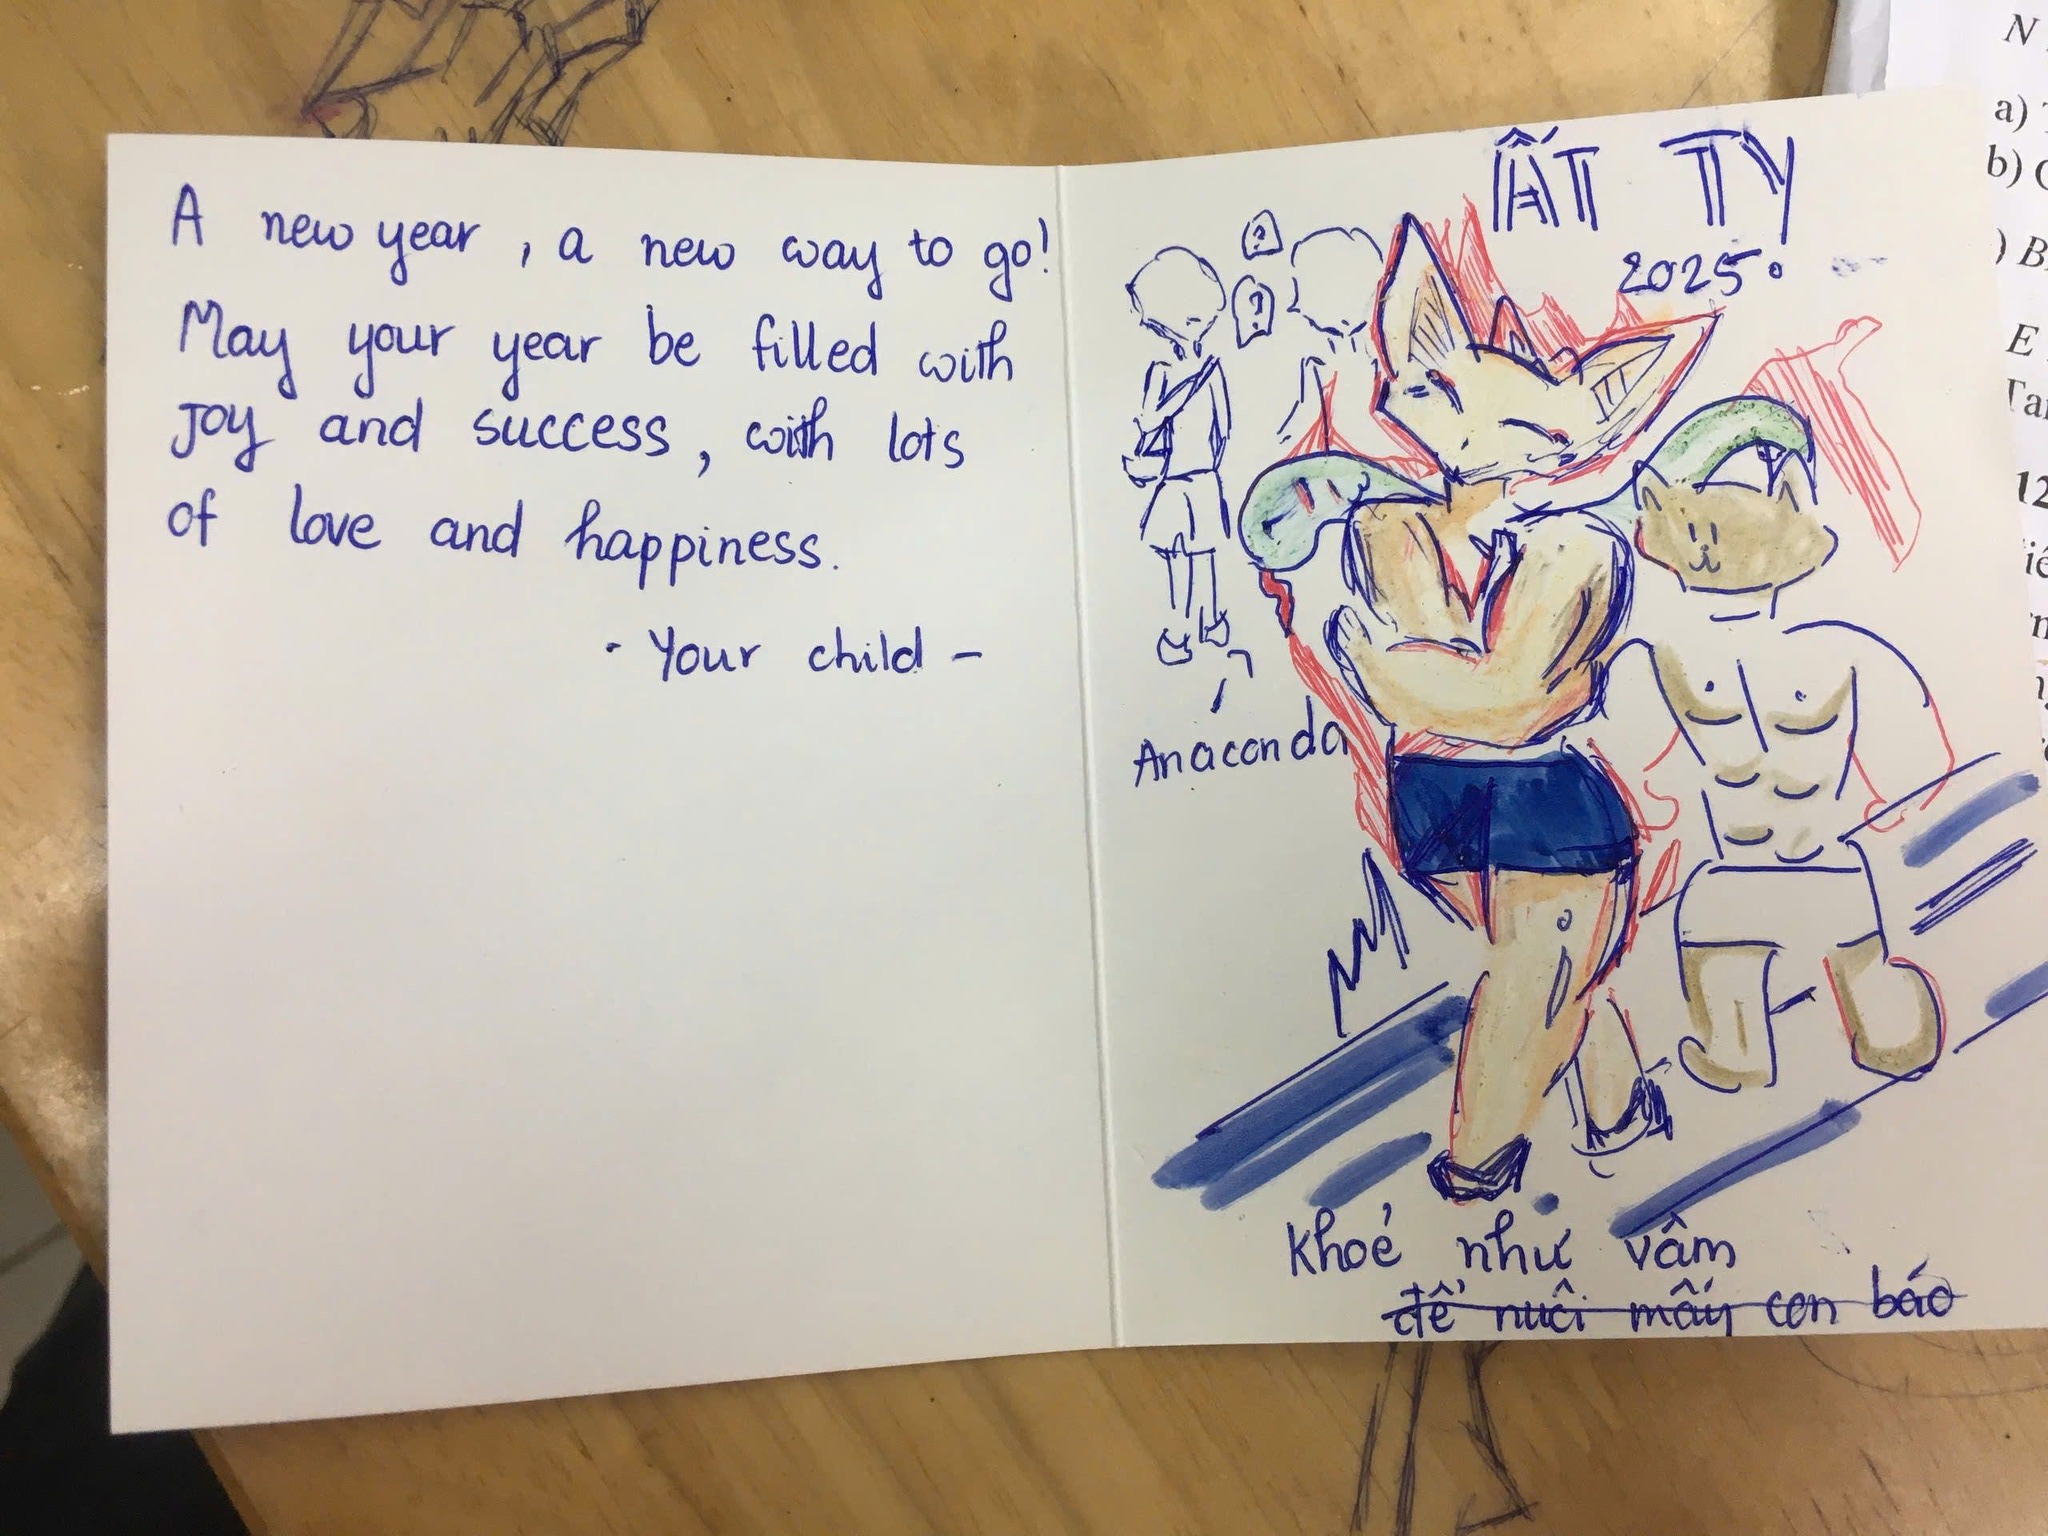 A new year, a new way to go!
May your year be filled with
joy and success, with lots
of love and happiness.
- Your child -
ẤT TY
2025.
?
?
Anaconda
Khoẻ như vâm
để nuôi mấy con báo
N
a)
b)
B
E
12